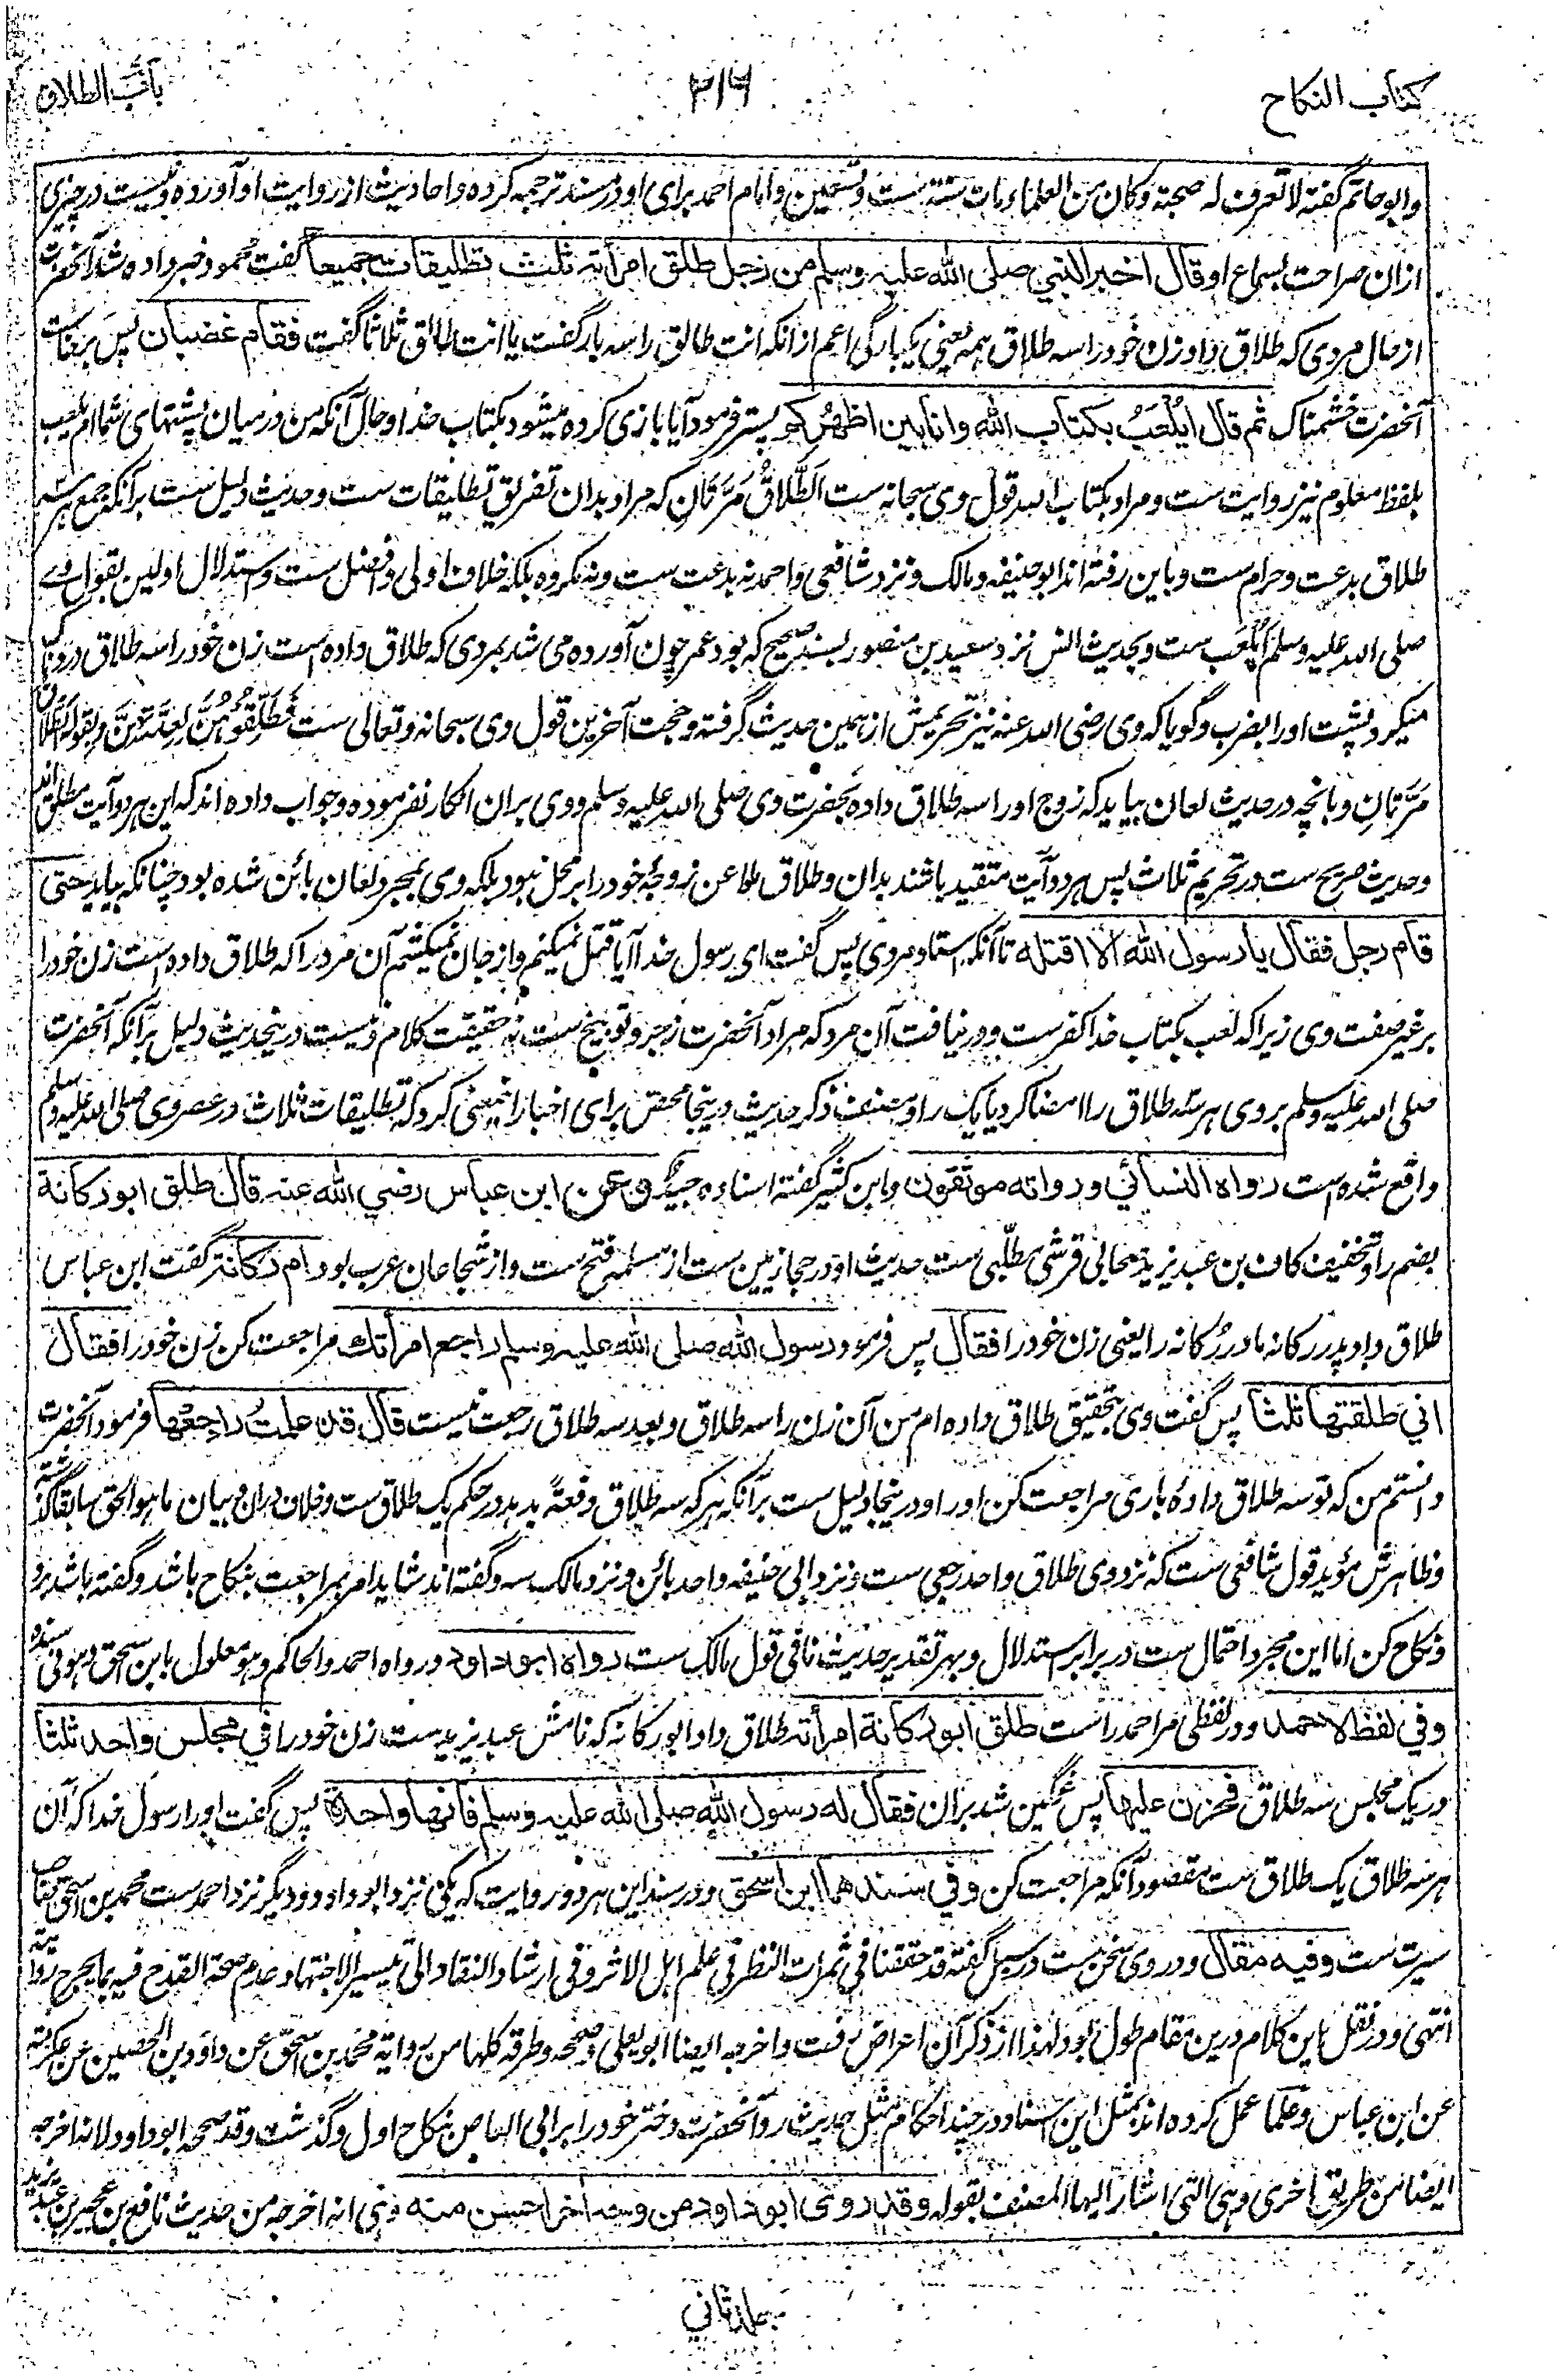 کتاب النکاح
۲۱۶
باب الطلاق
وابو حاتم گفته لا تعرف له صحبة وکان من العلماء مات سنة ست وتسعین وامام احمد برای او در مسند ترجمه کرده واحادیث از روایت او آورده ونیست در چیزی
ازان صراحت بسماع او قال اخبر النبي صلى الله عليه وسلم من رجل طلق امرأته ثلث تطليقات جميعا گفت محمود خبر داده شد آنحضرت
از حال مردی که طلاق داد زن خود را سه طلاق همه یعنی یکبارگی اعم از انکه انت طالق را سه بار گفت یا انت طالق ثلاثا گفت فقام غضبان پس برخاست
آنحضرت خشمناک ثم قال ايُلعَبُ بكتاب الله وانا بين اظهركم پستر فرمود آیا بازی کرده میشود بکتاب خدا وحال آنکه من در میان پشتهای شماام یلعب
بلفظ معلوم نیز روایت ست ومراد بکتاب الله قول وی سبحانه ست اَلطَّلَاقُ مَرَّتَانِ که مراد بدان تفریق تطلیقات ست وحدیث دلیل ست برآنکه جمع هر سه
طلاق بدعت وحرام ست وباین رفته اند ابو حنیفه ومالک ونزد شافعی واحمد نه بدعت ست ونه مکروه بلکه خلاف اولی وافضل ست واستدلال اولین بقول وے
صلی الله علیه وسلم ایلعب ست وبحدیث انس نزد سعید بن منصور بسند صحیح که بود عمر چون آورده می شد بمردی که طلاق داده است زن خود را سه طلاق دردناک
میکرد پشت او را بضرب وگویا که وی رضی الله عنه نیز تحریمش از همین حدیث گرفته وحجت آخرین قول وی سبحانه وتعالی ست فَطَلِّقُوهُنَّ لِعِدَّتِهِنَّ وبقوله الطلاق
مَرَّتَانِ وبانچه در حدیث لعان بیاید که زوج او را سه طلاق داده بحضرت وی صلی الله علیه وسلم ووی بران انکار نفرموده وجواب داده اند که این هر دو آیت مطلق اند
وحدیث صریح ست در تحریم ثلاث پس هر دو آیت متقید باشند بدان وطلاق ملاعن زوجۀ خود را برمحل نبود بلکه وی بمجرد لعان بائن شده بود چنانکه بیاید حتى
قام رجل فقال يا رسول الله الا اقتله تا آنکه استاد مردی پس گفت ای رسول خدا آیا قتل نمیکنم واز جان نمیکشم آن مرد را که طلاق داده است زن خود را
بر غیر صفت وی زیرا که لعب بکتاب خدا کفرست ودر نیافت آن مرد که مراد آنحضرت زجر وتوبیخ ست نه حقیقت کلام ونیست درینحدیث دلیل برآنکه آنحضرت
صلی الله علیه وسلم بروی هر سه طلاق را امضا کرد یا یک را ومصنف ذکر حدیث درینجا محض برای اخبار اینمعنی کرد که تطلیقات ثلاث در عصر وی صلی الله علیه وسلم
واقع شده است رواه النسائي ورواته موثقون وابن کثیر گفته اسناده جیدٌ وعن ابن عباس رضي الله عنه قال طلق ابو ركانة
بضم را وتخفیف کاف بن عبد یزید صحابی قرشی مطلّبی ست حدیث او در حجازیین ست از مسلمۀ فتح ست واز شجاعان عرب بود ام ركانة گفت ابن عباس
طلاق داد پدر رکانه مادر رُکانه را یعنی زن خود را فقال پس فرمود رسول الله صلى الله عليه وسلم راجع امرأتك مراجعت کن زن خود را فقال
اني طلقتها ثلثا پس گفت وی بتحقیق طلاق داده ام من آن زن را سه طلاق وبعد سه طلاق رجعت نیست قال قد علمتُ راجعها فرمود آنحضرت
دانستم من که تو سه طلاق دادۀ باری مراجعت کن او را ودرینجا دلیل ست برآنکه هر که سه طلاق دفعةً بدهد در حکم یک طلاق ست وخلاف دران وبیان ما هو الحق سابقا گذشته
وظاهرش مؤید قول شافعی ست که نزد وی طلاق واحد رجعی ست ونزد ابی حنیفه واحد بائن ونزد مالک سه وگفته اند شاید امر بمراجعت بنکاح باشد وگفته باشد برو
ونکاح کن اما این مجرد احتمال ست در برابر استدلال وبهر تقدیر حدیث نافی قول مالک ست رواه ابو داود ورواه احمد والحاکم وهو معلول بابن اسحق وهو فی سنده
وفي لفظ لاحمد ودر لفظی مر احمد راست طلق ابو ركانة امرأته طلاق داد ابو رکانه که نامش عبد یزید ست زن خود را في مجلس واحد ثلثا
در یک مجلس سه طلاق فحزن عليها پس غمگین شد بران فقال له رسول الله صلى الله عليه وسلم فانها واحدة پس گفت او را رسول خدا که آن
هر سه طلاق یک طلاق ست مقصود آنکه مراجعت کن وفي سندهما ابن اسحق ودر سند این هر دو روایت که یکی نزد ابو داود ودیگر نزد احمد ست محمد بن اسحق صاحب
سیرت ست وفيه مقال ودر وی سخن ست در سبل گفته قد حققنا فی ثمرات النظر فی علم اهل الاثر وفی ارشاد النقاد الی تیسیر الاجتهاد وعدم صحة القدح فیه بما یجرح روایته
انتهی ودر نقل این کلام درین مقام طول بود لهذا از ذکر آن اعراض رفت واخرجه ایضا ابو یعلی وصححه وطرقه کلها من روایة محمد بن اسحق عن داود بن الحصین عن عکرمة
عن ابن عباس وعلما عمل کرده اند بمثل این اسناد در چند احکام مثل حدیث رد آنحضرت دختر خود را بر ابی العاص بنکاح اول وگذشت وقد صححه ابو داود لانه اخرجه
ایضا من طریق اخری وهی التی اشار الیها المصنف بقوله وقد روى ابو داود من وجه اخر احسن منه وهی انه اخرجه من حدیث نافع بن عجیر بن عبد یزید
جلد ثانی